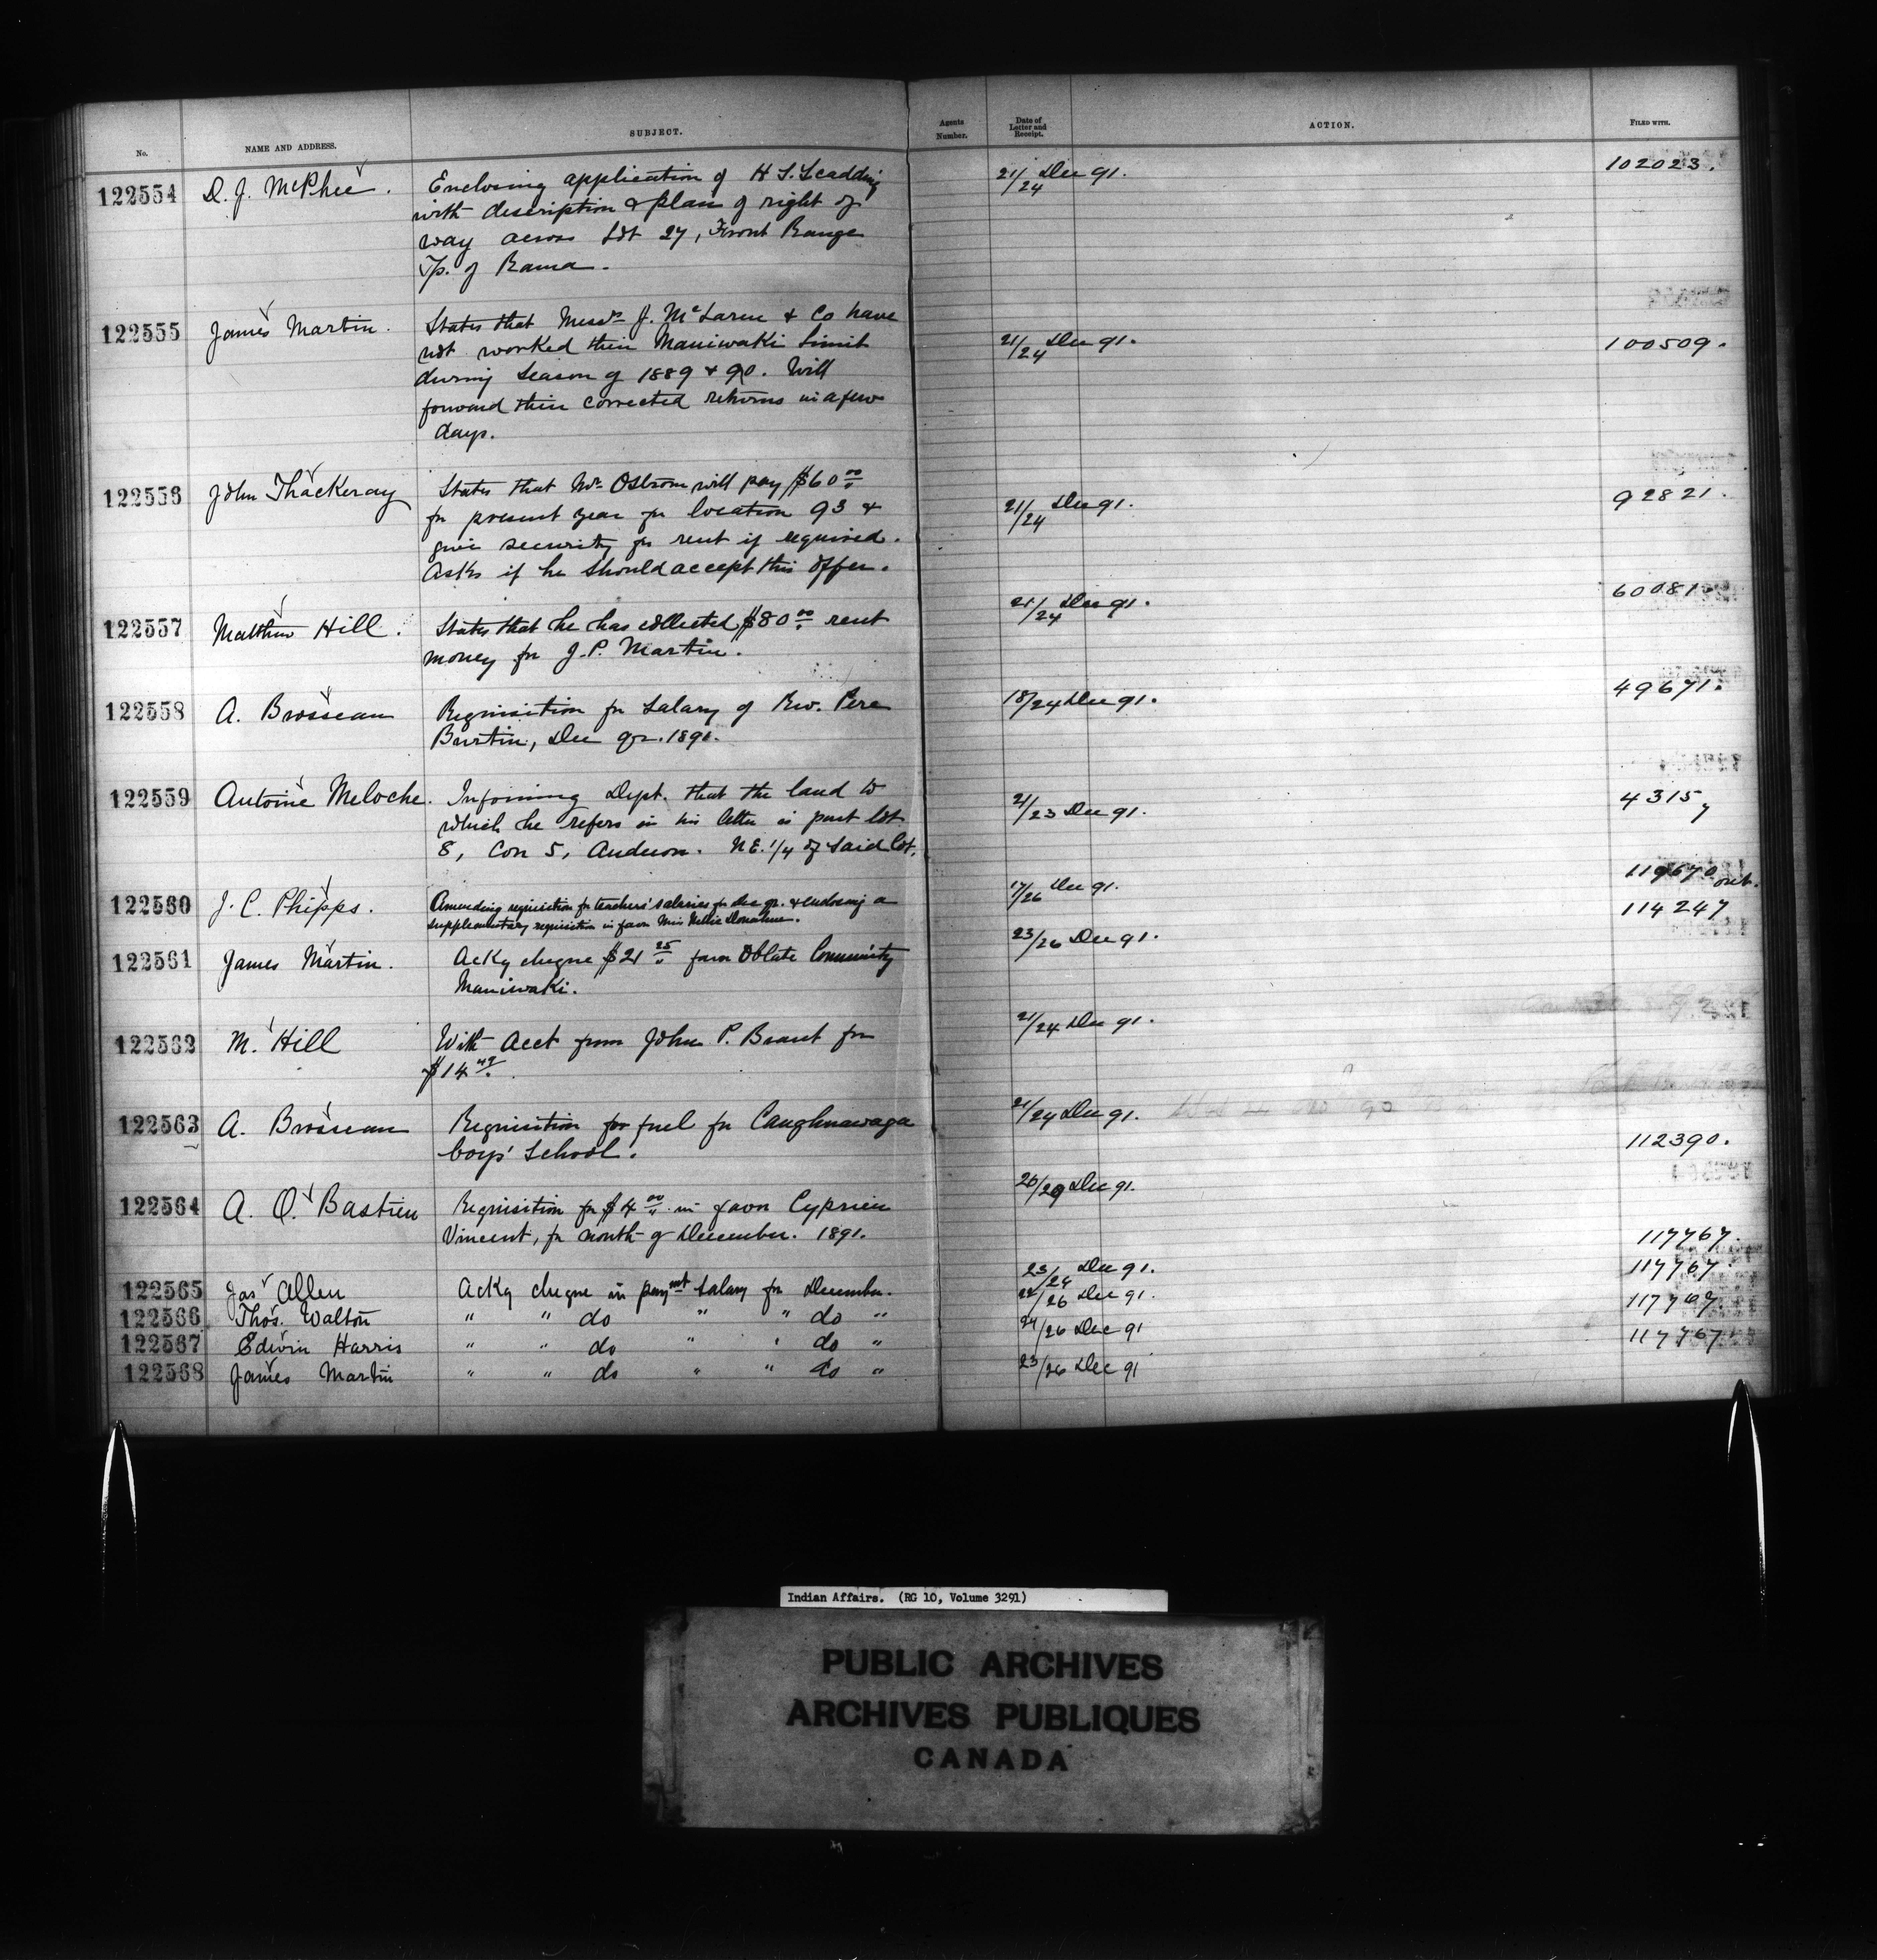 No.
NAME AND ADDRESS.
SUBJECT.
Agents Number.
Date of Letter and Receipt.
ACTION.
FILED WITH.
122554 D. J. McPhee. Enclosing application of H S. Scadding 21/24 Dec 91. 102023.
with description & plan of right of
way across Lot 27, Front Range
Tp. of Rama.
122555 James Martin. States that Messrs J. McLaren & Co have 21/24 Dec 91. 100509.
not worked their Maniwaki Limit
during Season of 1889 & 90. Will
forward their corrected returns in a few
days.
122556 John Thackeray States that Mr Ostrom will pay $60.00 21/24 Dec 91. 92821.
for present year for location 93 &
give security for rent if required.
Asks if he should accept this offer.
122557 Matthew Hill. States that he has collected $80.00 rent 21/24 Dec 91. 60081.
money for J. P. Martin.
122558 A. Brosseau Requisition for Salary of Rev. Pere 18/24 Dec 91. 49671.
Burtin, Dec qr. 1891.
122559 Antoine Meloche. Informing Dept. that the land to 21/23 Dec 91. 43157
which he refers in his letter is part lot
8, Con 5, Anderon. N.E. 1/4 of said lot.
122560 J. C. Phipps. Amending requisition for teachers' salaries for Dec qr. & enclosing a 17/26 Dec 91. 119670 out.
supplementary requisition in favor Miss Nellie Donahue.
122561 James Martin. Ackg cheque $21.25 favor Oblate Community 23/26 Dec 91. 114247
Maniwaki.
122562 M. Hill With Acct from John P. Brant for 21/24 Dec 91.
$14.49.
122563 A. Brosseau Requisition for fuel for Caughnawaga 21/24 Dec 91. 112390.
boys' School.
122564 A. O. Bastien Requisition for $4.00 in favor Cyprien 26/29 Dec 91.
Vincent, for month of December. 1891.
117767.
122565 Jas Allen Ackg cheque in paymt Salary for December. 23/24 Dec 91. 117767.
122566 Thos. Walton " " do " " do " 24/26 Dec 91. 117767
122567 Edwin Harris " " do " " do " 24/26 Dec 91 117767
122568 James Martin " " do " " do " 23/26 Dec 91
Indian Affairs. (RG 10, Volume 3291)
PUBLIC ARCHIVES
ARCHIVES PUBLIQUES
CANADA